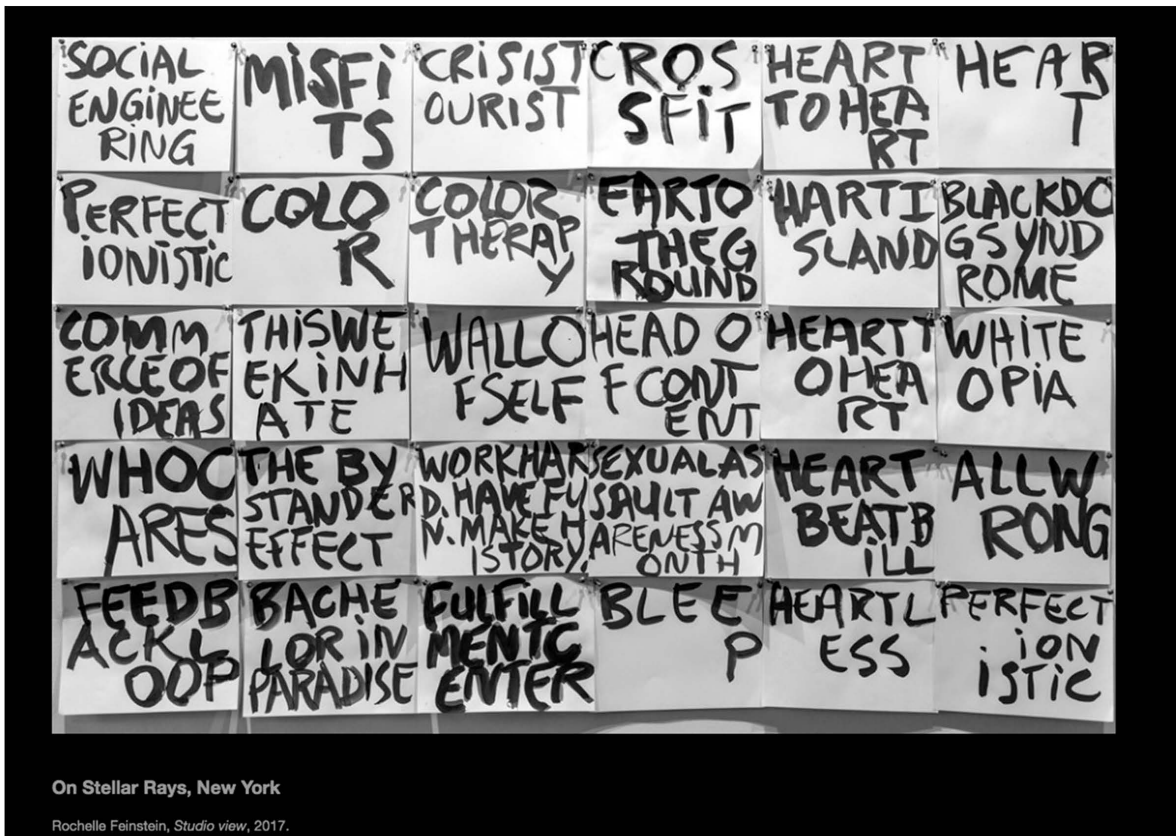 SOCIAL
ENGINEE
RING
MISFI
TS
CRISIST
OURIST
CROS
SFIT
HEART
TO HEA
RT
HEAR
T
PERFECT
IONISTIC
COLO
R
COLOR
THERAP
Y
EARTO
THEG
ROUND
HARTI
SLAND
BLACKDO
GSYND
ROME
COMM
ERCE OF
IDEAS
THISWE
EKINH
ATE
WALLO
FSELF
HEAD O
F CONT
ENT
HEARTT
OHEA
RT
WHITE
OPIA
WHOC
ARES
THE BY
STANDER
EFFECT
WORKHAR
D. HAVE FU
N. MAKE H
ISTORY.
SEXUALAS
SAULT AW
ARENESSM
ONTH
HEART
BEATB
ILL
ALLW
RONG
FEEDB
ACKL
OOP
BACHE
LOR IN
PARADISE
FULFILL
MENTC
ENTER
BLEE
P
HEARTL
ESS
PERFECT
ION
ISTIC
On Stellar Rays, New York
Rochelle Feinstein, Studio view, 2017.